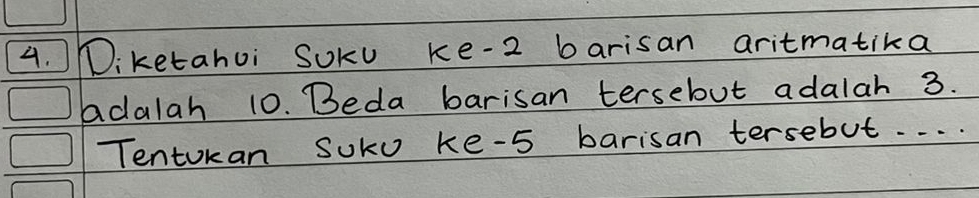 4. Diketahui suku ke-2 barisan aritmatika
adalah 10. Beda barisan tersebut adalah 3.
Tentukan suku ke-5 barisan tersebut ....